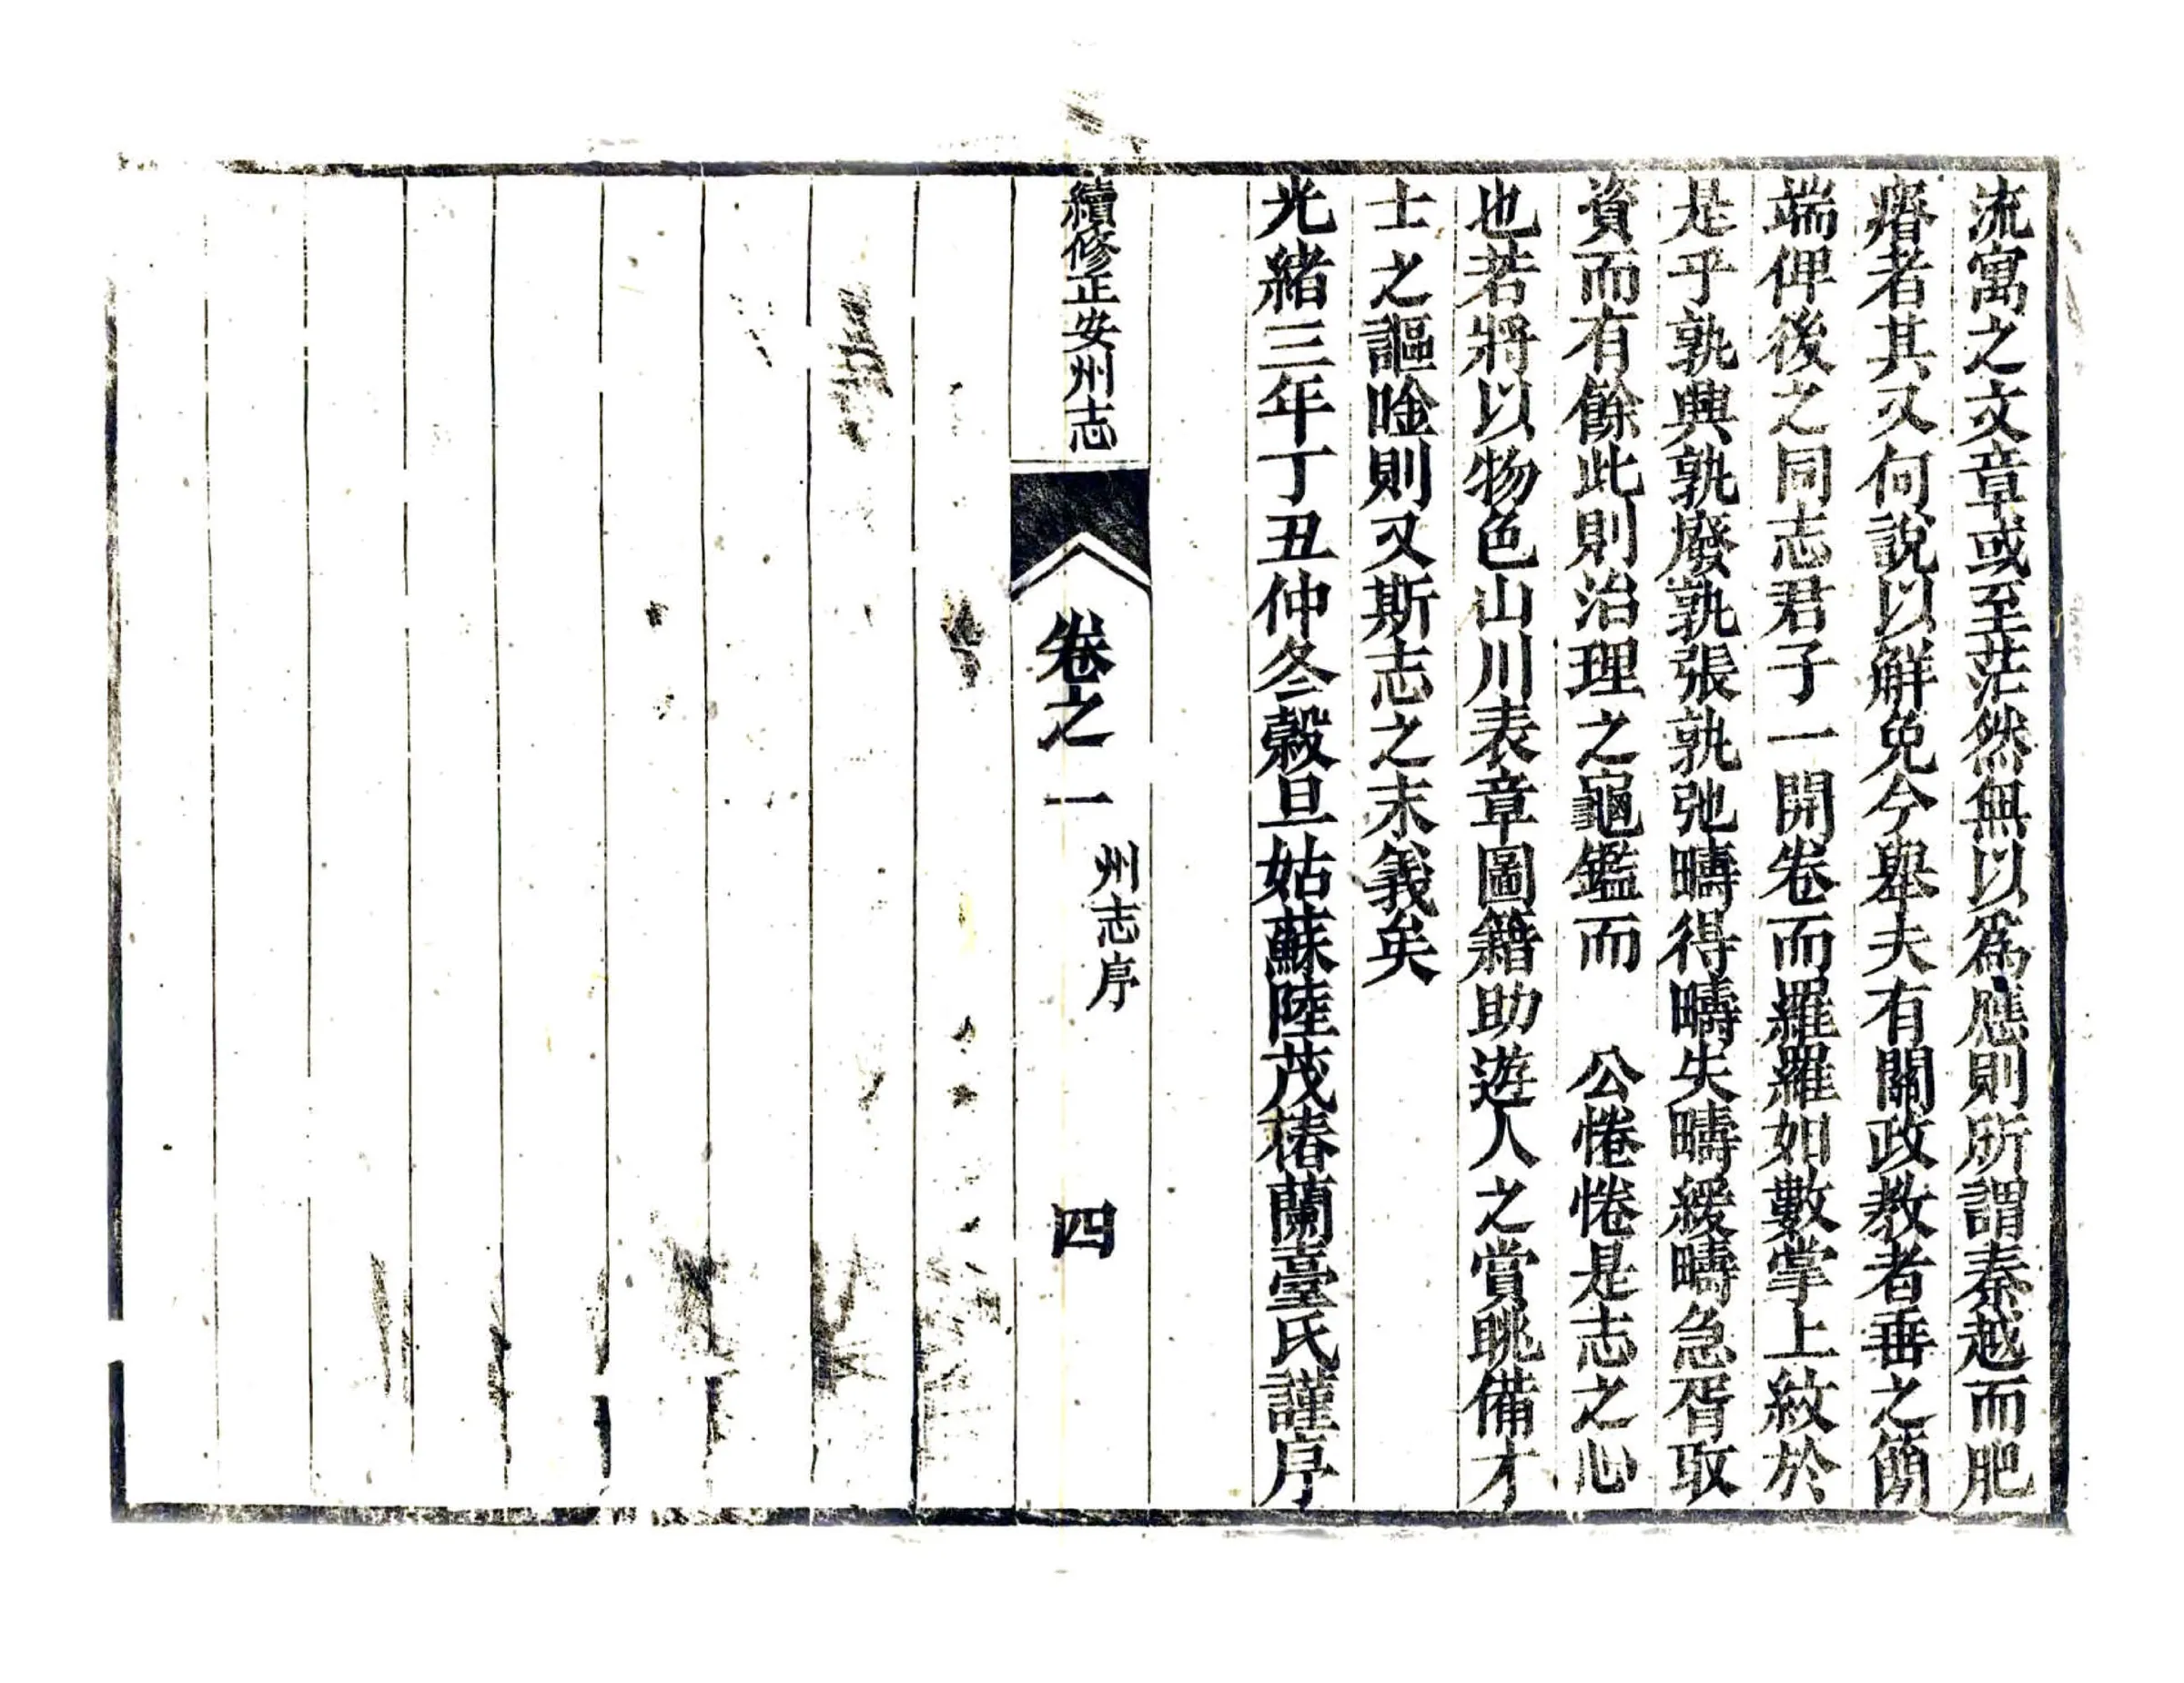 流寓之文章或至茫然無以爲應則所謂秦越而肥
瘠者其又何說以解免今舉夫有關政敎者垂之簡
端俾後之同志君子一開卷而羅羅如數掌上紋於
是乎孰興孰廢孰張孰弛疇得疇失疇緩疇急胥取
資而有餘此則治理之龜鑑而　公惓惓是志之心
也若將以物色山川表章圖籍助遊人之賞眺備才
士之謳唫則又斯志之末義矣
光緒三年丁丑仲冬穀旦姑蘇陸茂椿蘭臺氏謹序
續修正安州志
卷之一
州志序
四